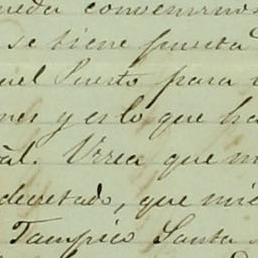 convenirnos
se tiene puesta
uel Puerto para
ner y es lo que ha
al. Urrea que
decretado, que
Tampico Santa